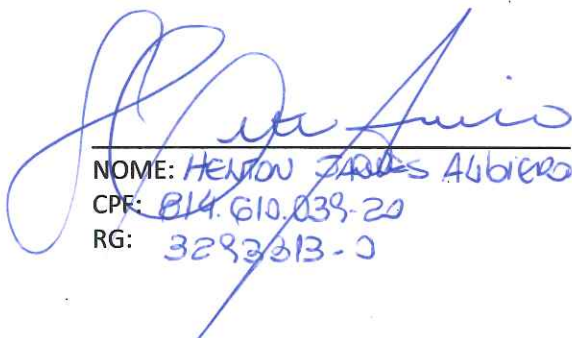 NOME: HELTON ALBIERO
CPF: 814.610.039-20
RG: 3293313-0